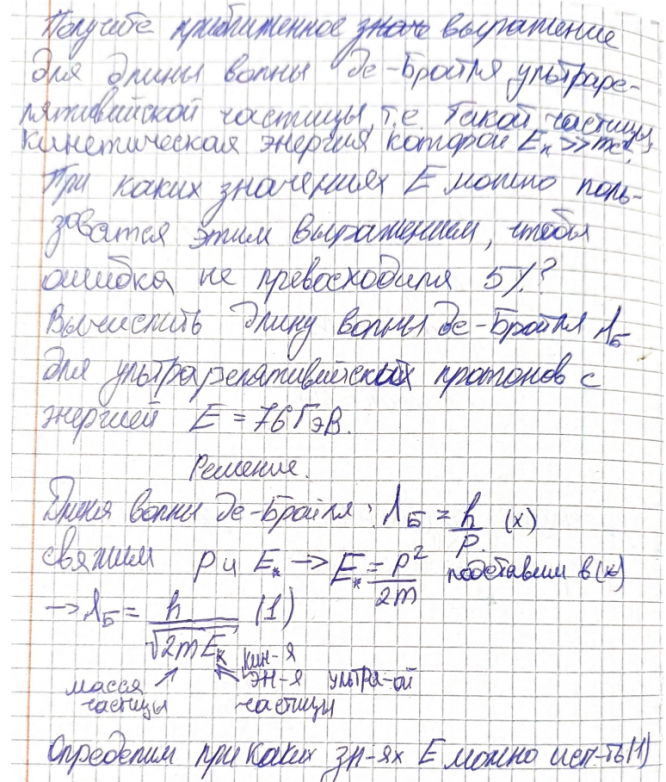 Получите приближенное выражение
для длины волны де-Бройля ультраре-
лятивийской частицы, т.е. такой частицы,
кинетическая энергия которой Eк >> mc².
При каких значениях E можно поль-
зоватся этим выражением, чтобы
ошибка не превосходила 5%?
Вычислить длину волны де-Бройля λБ
для ультрарелативийских протонов с
энергией E = 76 ГэВ.
Решение.
Длина волны де-Бройля: λБ = h/p (x)
свяжим p и Eк → Eк = p²/2m подставим в (x)
→ λБ = h/√2mEк (1)
масса частицы
кин-я эн-я ультра-ой частицы
Определим при каких зн-ях E можно исп-ть (1)